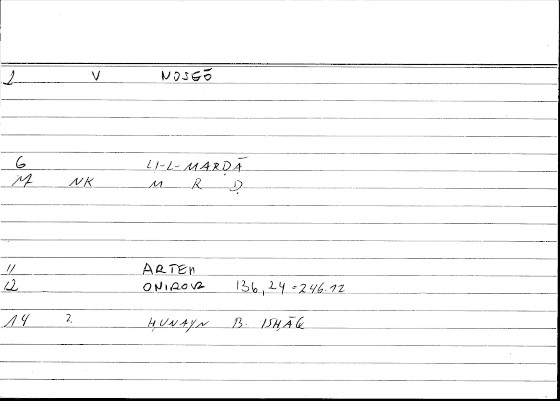 2 V NOSEŌ
6 LI-L-MARḌĀ
M NK M R Ḍ
11 ARTEM
12 ONIROCR 136,24=246.12
14 2 ḤUNAYN B. ISḤĀQ